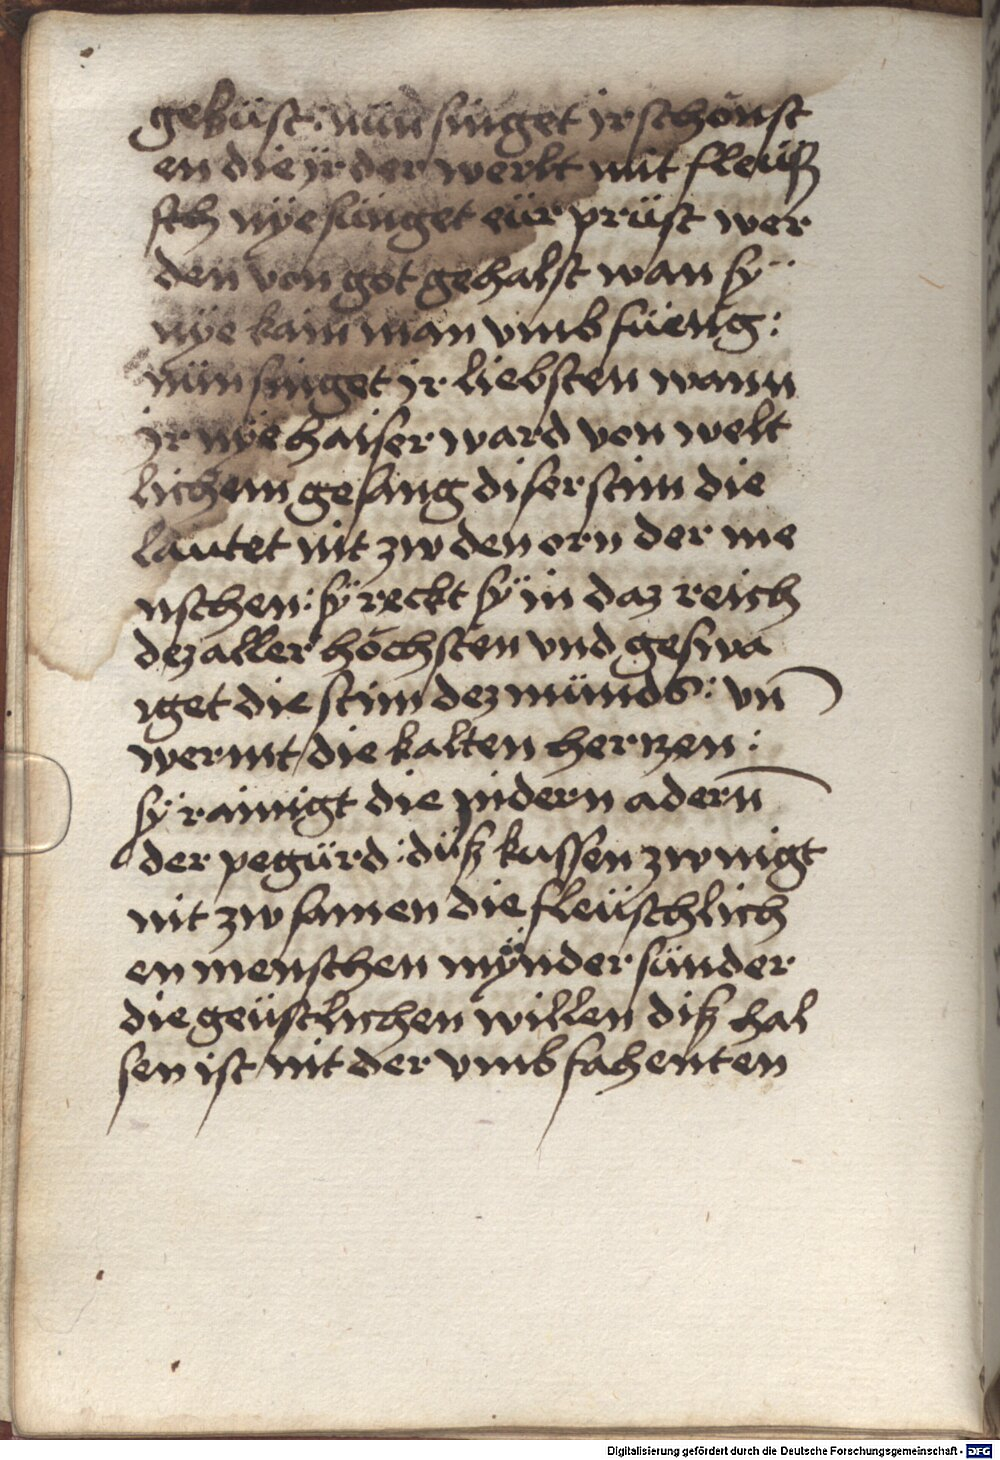 geküst: nün singet ir schönst
en die ir der werlt mit fleüß
sch nÿe sünget eür prüst wer
den von got gehalst wan sÿ
nÿe kain man vmb füeng:
nün singet ir liebsten wann
ir nÿe haiser ward von welt
lichem gesang diser stim die
lautet nit zw den orn der me
nschen: sÿ reckt sÿ in daz reich
dez aller höchsten vnd geswa
iget die stim dez münds: vn̄
wermt die kalten herczen:
sÿ rainigt die nidern adern̄
der pegürd: düß kussen zwnigt
nit zw samen die fleüschlich
en menschen mÿnder sünder
die geüstlichen willen diß hal
sen ist nit der vmb fahenten
Digitalisierung gefördert durch die Deutsche Forschungsgemeinschaft - DFG